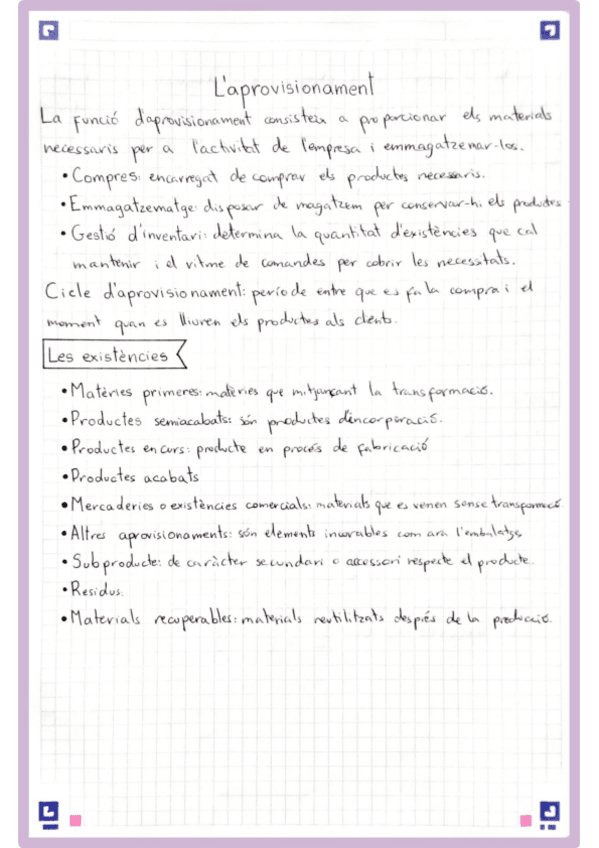 L'aprovisionament
La funció d'aprovisionament consisteix a proporcionar els materials
necessaris per a l'activitat de l'empresa i emmagatzenar-los.
• Compres: encarregat de comprar els productes necessaris.
• Emmagatzematge: disposar de magatzem per conservar-hi els productes
• Gestió d'inventari: determina la quantitat d'existències que cal
mantenir i el ritme de comandes per cobrir les necessitats.
Cicle d'aprovisionament: període entre que es fa la compra i el
moment quan es lliuren els productes als clients.
Les existències
• Matèries primeres: matèries que mitjançant la transformació.
• Productes semiacabats: són productes d'incorporació.
• Productes en curs: producte en procés de fabricació
• Productes acabats
• Mercaderies o existències comercials: materials que es venen sense transformació.
• Altres aprovisionaments: són elements com ara l'embalatge
• Subproducte: de caràcter secundari o accessori respecte el producte.
• Residus.
• Materials recuperables: materials reutilitzats després de la producció.